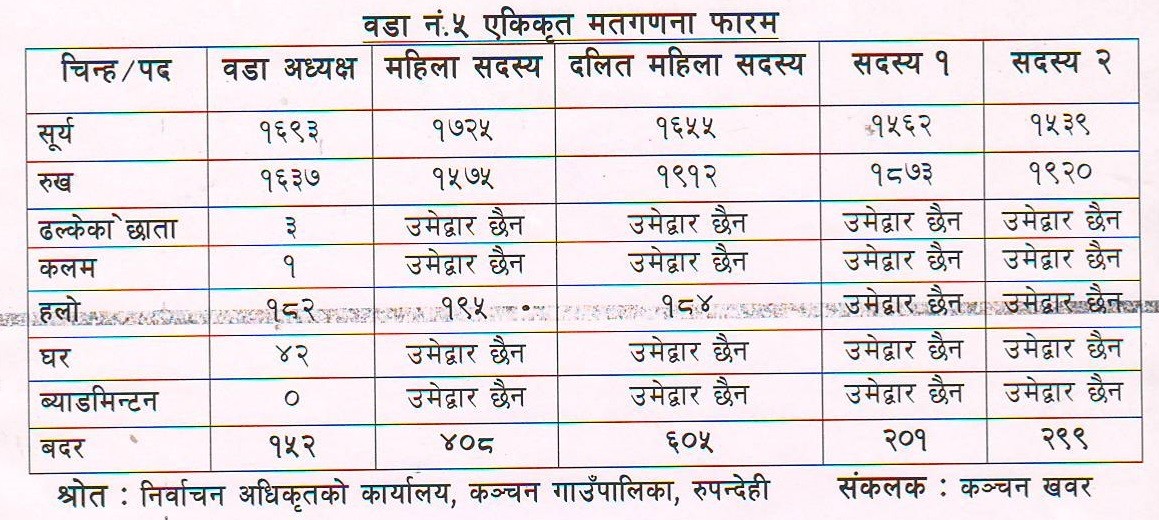 वडा नं.५ एकिकृत मतगणना फारम
चिन्ह/पद वडा अध्यक्ष महिला सदस्य दलित महिला सदस्य सदस्य १ सदस्य २
सूर्य १६९३ १७२५ १६५५ १५६२ १५३९
रुख १६३७ १५७५ १९१२ १८७३ १९२०
ढल्केकाे छाता ३ उमेद्वार छैन उमेद्वार छैन उमेद्वार छैन उमेद्वार छैन
कलम १ उमेद्वार छैन उमेद्वार छैन उमेद्वार छैन उमेद्वार छैन
हलो १८२ १९५ १८४ उमेद्वार छैन उमेद्वार छैन
घर ४२ उमेद्वार छैन उमेद्वार छैन उमेद्वार छैन उमेद्वार छैन
ब्याडमिन्टन ० उमेद्वार छैन उमेद्वार छैन उमेद्वार छैन उमेद्वार छैन
बदर १५२ ४०८ ६०५ २०१ २९९
श्रोत : निर्वाचन अधिकृतको कार्यालय, कञ्चन गाउँपालिका, रुपन्देही संकलक : कञ्चन खवर